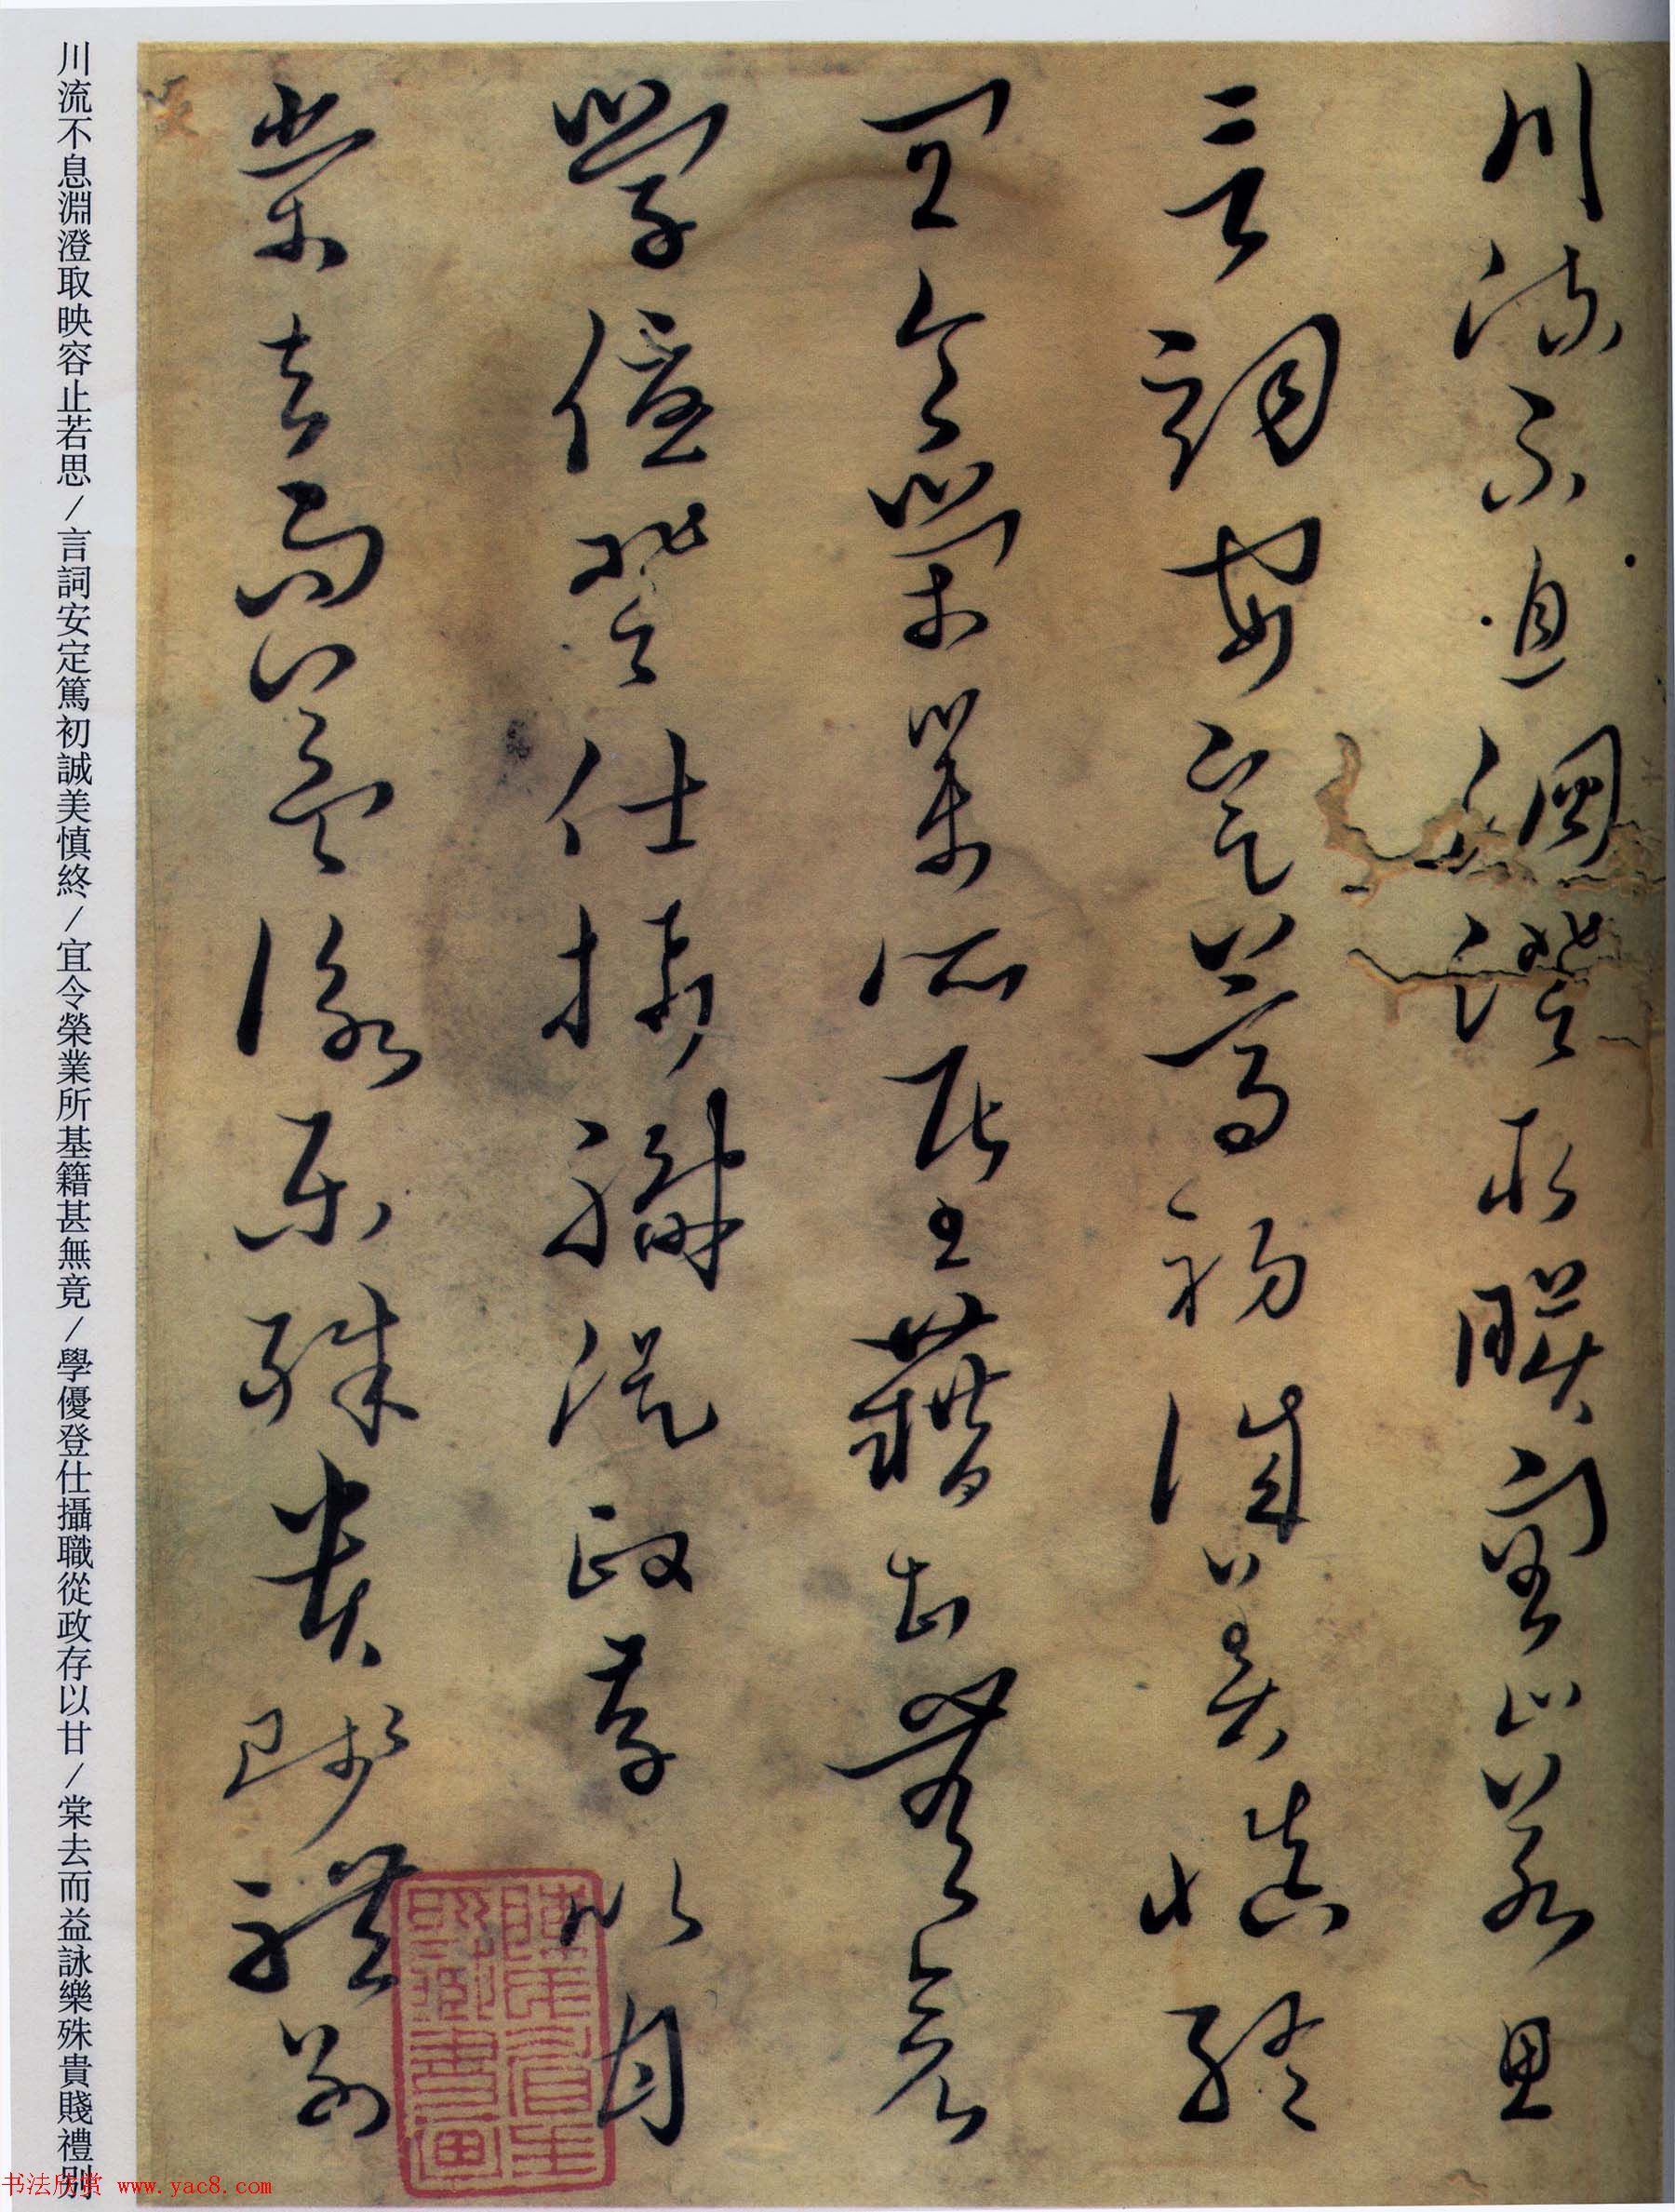 川流不息淵澄取映容止若思
言詞安定篤初誠美慎終
宜令榮業所基籍甚無竟
學優登仕攝職從政存以甘
棠去而益詠樂殊貴賤禮別
川流不息淵澄取映容止若思/言詞安定篤初誠美慎終/宜令榮業所基籍甚無竟/學優登仕攝職從政存以甘/棠去而益詠樂殊貴賤禮別
书法欣赏 www.yac8.com